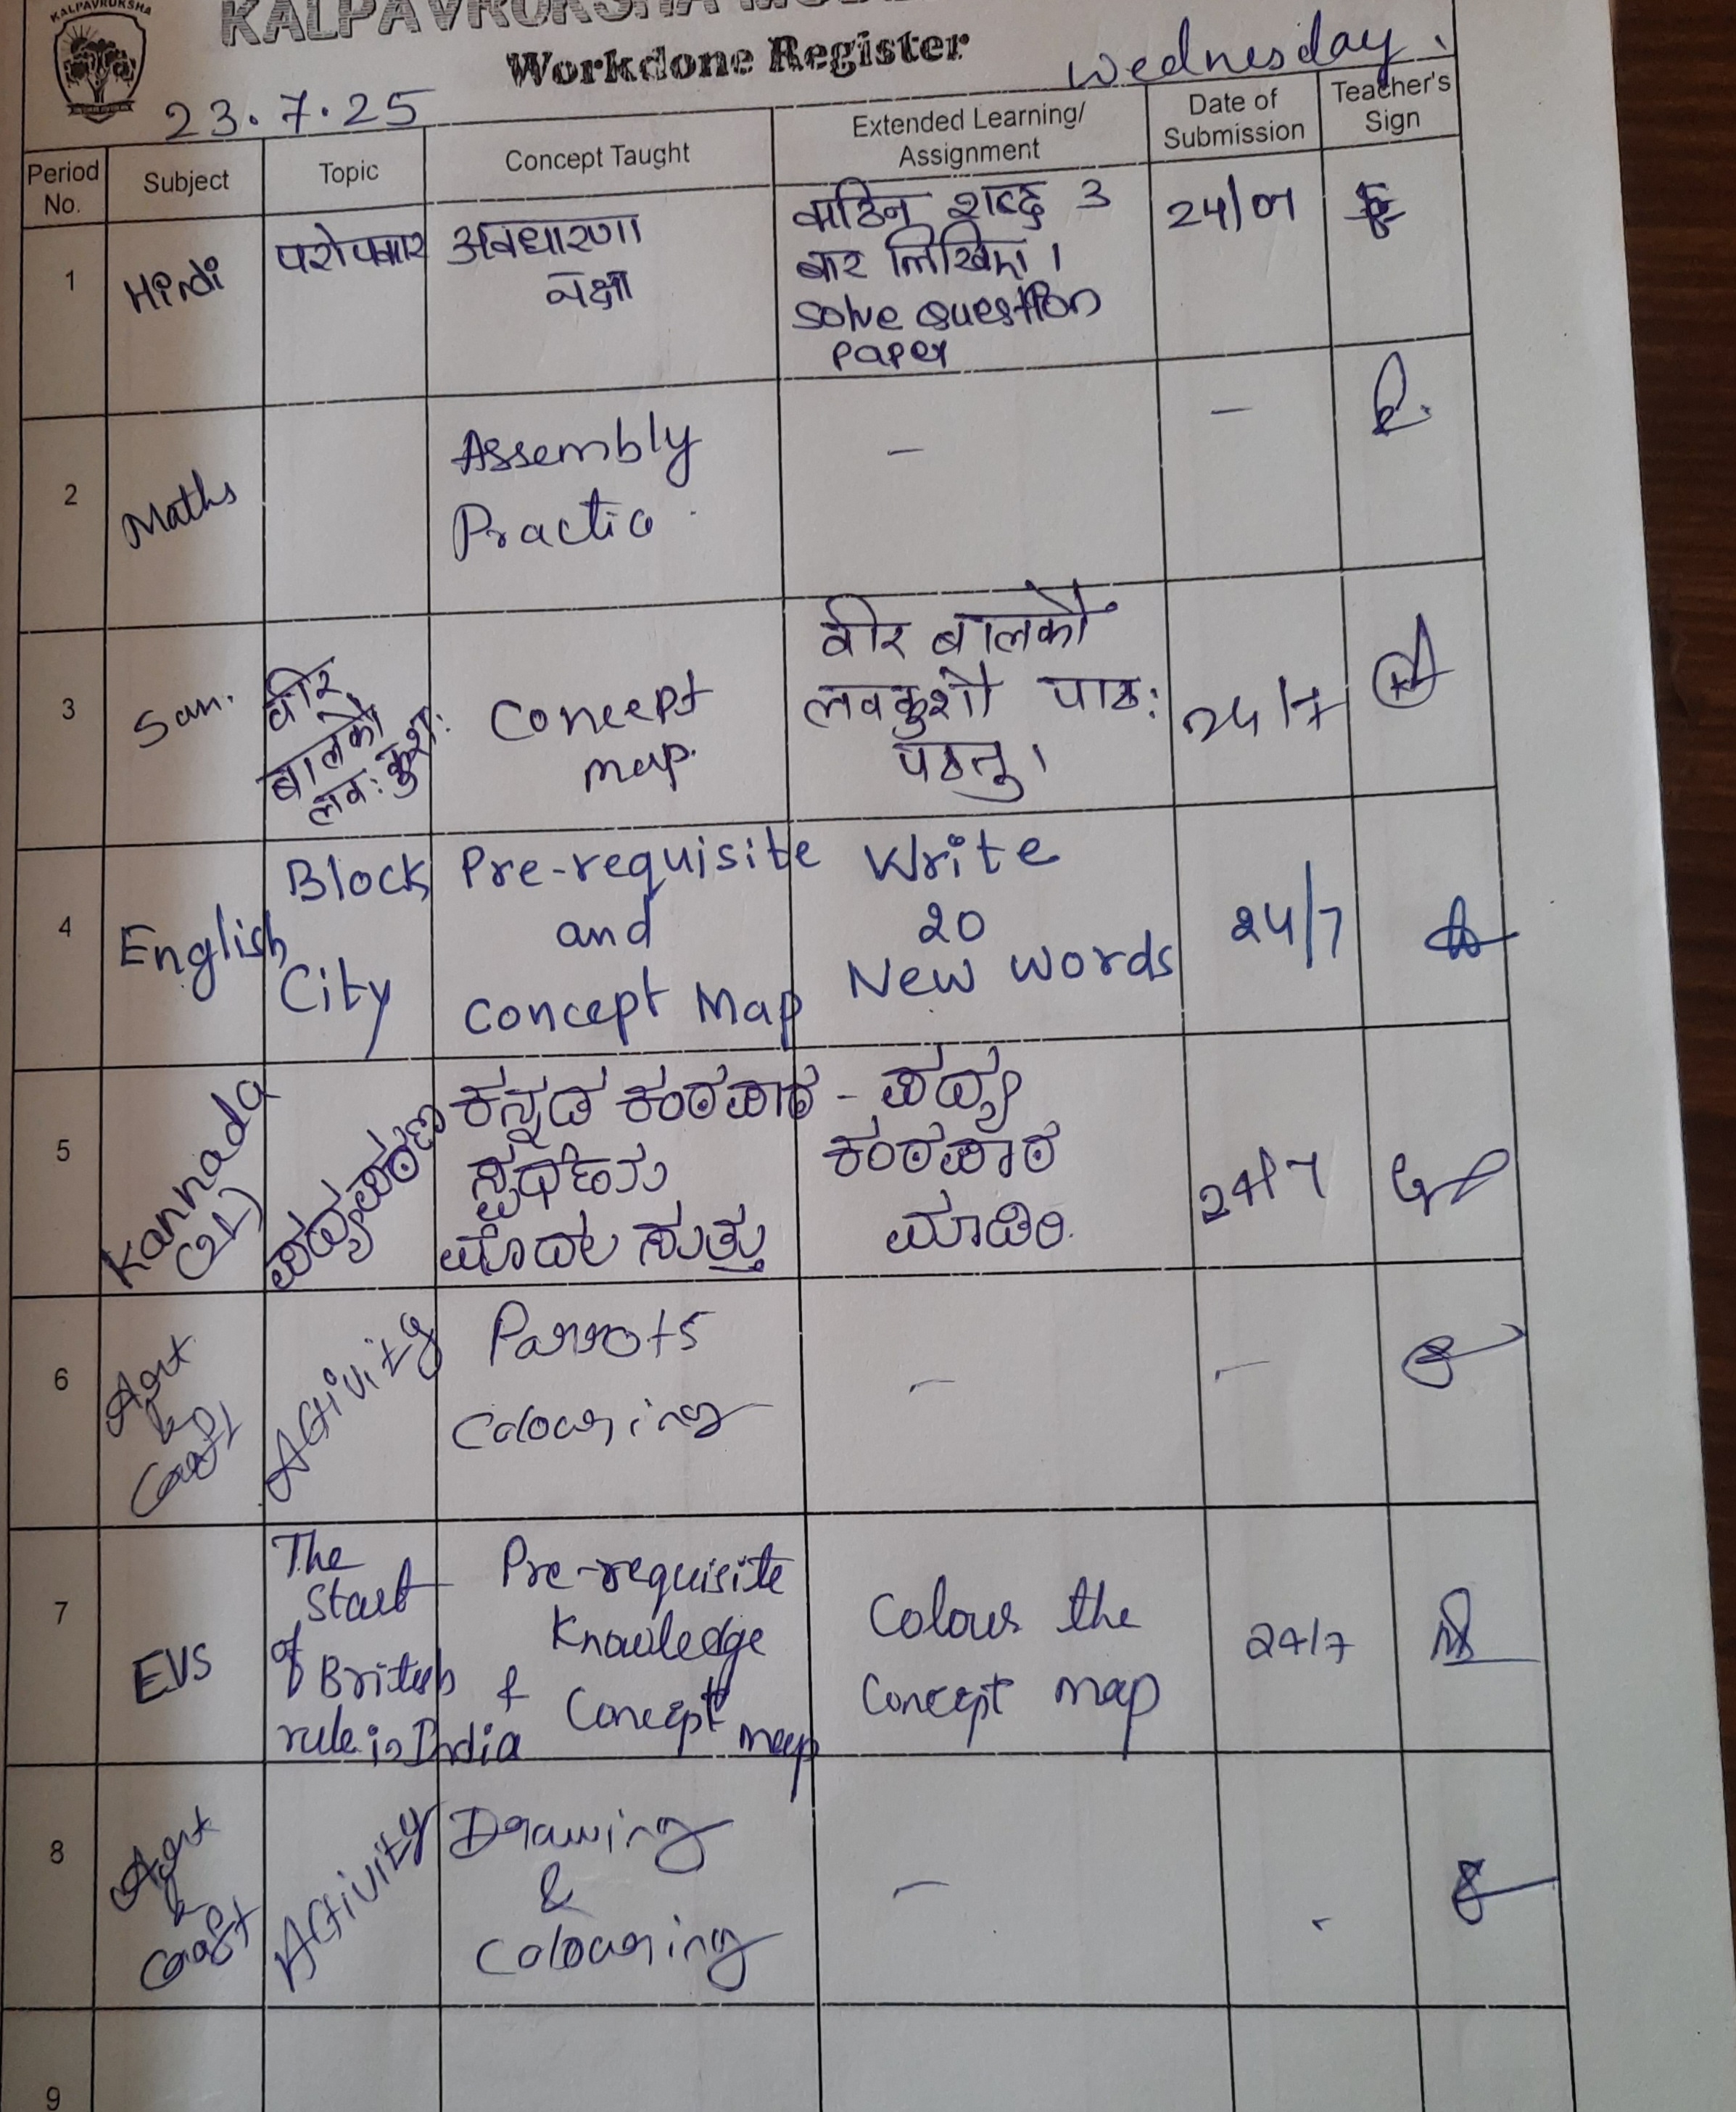 KALPAVRUKSHA
KALPAVRUKSHA
Workdone Register
23.7.25
Wednesday.
Period No. Subject Topic Concept Taught Extended Learning/ Assignment Date of Submission Teacher's Sign
1 Hindi परोपकार अवधारणा
नक्षा
कठिन शब्द 3
बार लिखिए।
Solve question
paper
24/07
2 Maths
Assembly
Practice.
–
–
3 San.
वीर
बालकौ
लव:कुश:
Concept
map.
वीर बालकौ
लवकुशौ पाठ:
पठतु।
24/7
4 English
Block
City
Pre-requisite
and
Concept Map
Write
20
New words
24/7
5 Kannada
(2L)
ಪದ್ಯಪಠಣ
ಕನ್ನಡ ಕಂಠಪಾಠ
ಸ್ಪರ್ಧೆಯ
ಮೊದಲ ಸುತ್ತು
- ಪದ್ಯ
ಕಂಠಪಾಠ
ಮಾಡಿರಿ.
24/7
6 Art
&
Craft
Activity
Parrots
Colouring
–
–
7 EVS
The
Start
of
British
rule in India
Pre-requisite
Knowledge
& Concept map
Colour the
Concept map
24/7
8 Art
&
Craft
Activity
Drawing
&
Colouring
–
-
9